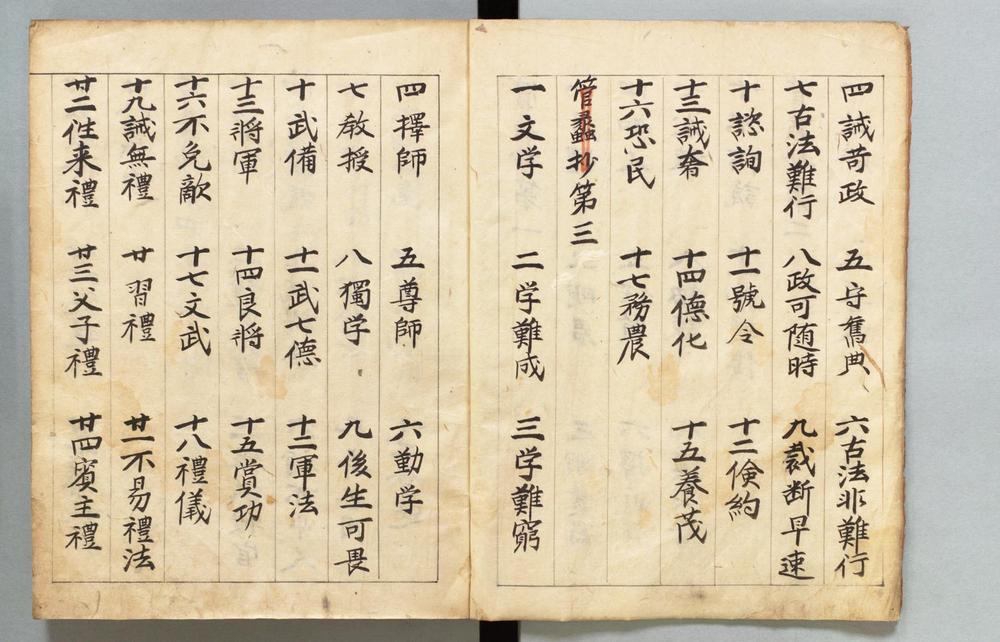 四誡苛政 五守舊典 六古法非難行
七古法難行 八政可随時 九裁断早速
十諮詢 十一號令 十二倹約
十三誡奢 十四德化 十五養茂
十六恐民 十七務農
管蠡抄第三
一文学 二学難成 三学難窮
四擇師 五尊師 六勤学
七教授 八獨学 九後生可畏
十武備 十一武七德 十二軍法
十三將軍 十四良将 十五賞功
十六不免敵 十七文武 十八禮儀
十九誡無禮 廿習禮 廿一不易禮法
廿二往来禮 廿三父子禮 廿四賓主禮